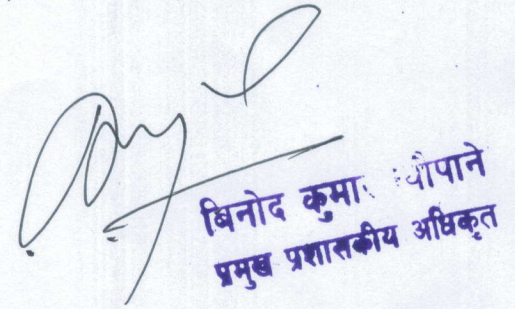 बिनोद कुमार
प्रमुख प्रशासकीय अधिकृत